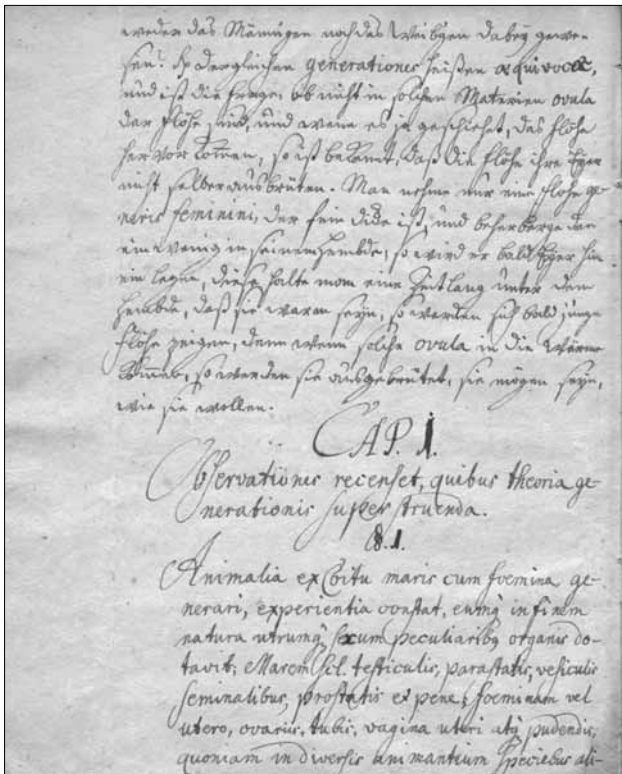 weder das Mänñgen noch das Weibgen dabey gewe-
sen. dergleichen generationes heißen æquivocæ,
und ist die frage, ob nicht in solchen Materien ovula
der flöhe sind, und wenn es ja geschiehet, das flöhe
hervor kommen, so ist bekannt, daß die flöhe ihre Eyer
nicht selber ausbrüten. Man nehme nur eine flöhe ge-
neris feminini, der fein dicke ist, und beherberge den
ein wenig in seinem hembde, so wird er bald Eyer hin
ein legen, diese halte man eine Zeitlang unter dem
hembde, daß sie warm seyn, so werden sich bald junge
flöhe zeigen, denn wenn solche ovula in die Wärme
kommen, so werden sie ausgebrütet, sie mögen seyn,
wie sie wollen.
CAP. I.
Observationes recenset, quibus theoria ge-
nerationis superstruenda.
§. 1.
Animalia ex Coitu maris cum foemina ge-
nerari, experientia constat, eumq; in finem
natura utrumq; sexum peculiaribq organis do-
tavit; Marem scil. testiculis, parastatis, vesiculis
seminalibus, prostatis et pene; foeminam vel
utero, ovariis, tubis, vagina uteri atq; pudendis,
quoniam in diversis animantium speciebus ali-